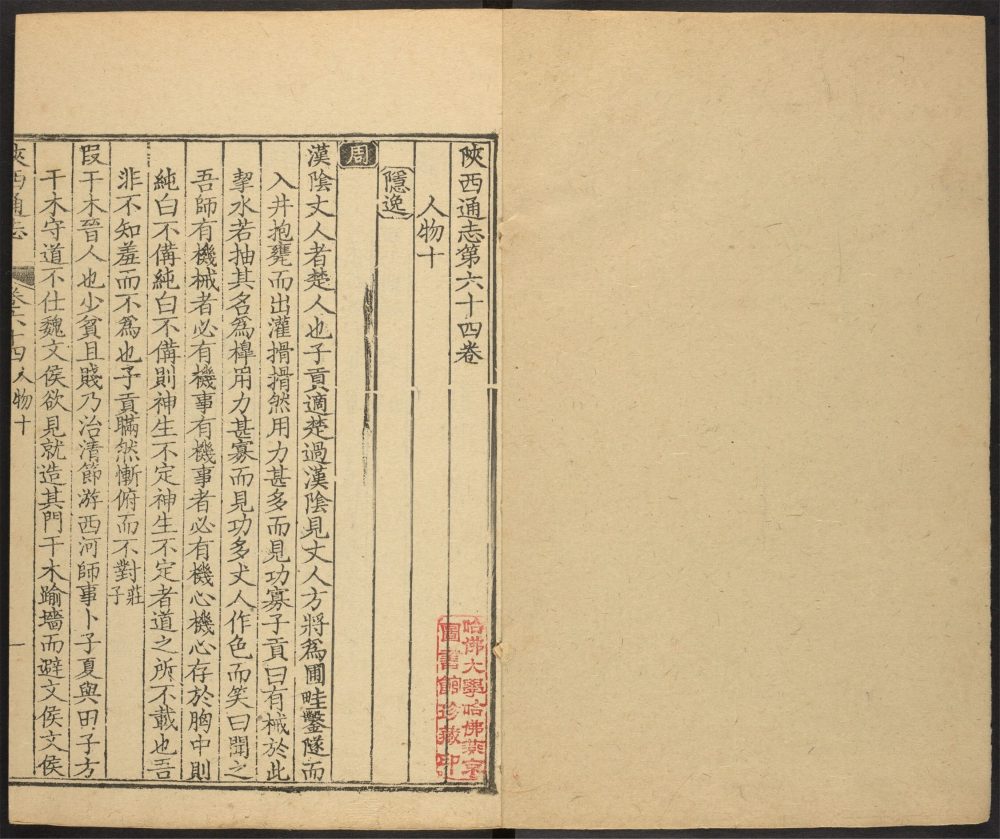 陝西通志第六十四卷
人物十
隱逸
周
漢陰丈人者楚人也子貢適楚過漢陰見丈人方將爲圃畦鑿隧而
入井抱甕而出灌搰搰然用力甚多而見功寡子貢曰有械於此
挈水若抽其名爲槔用力甚寡而見功多丈人作色而笑曰聞之
吾師有機械者必有機事有機事者必有機心機心存於胸中則
純白不備純白不備則神生不定神生不定者道之所不載也吾
非不知羞而不爲也子貢瞞然慚俯而不對莊子
段干木晉人也少貧且賤乃冶清節游西河師事卜子夏與田子方
干木守道不仕魏文侯欲見就造其門干木踰墻而避文侯文侯
陝西通志 卷六十四 人物十 一
哈佛大學哈佛燕京
圖書館珍藏印